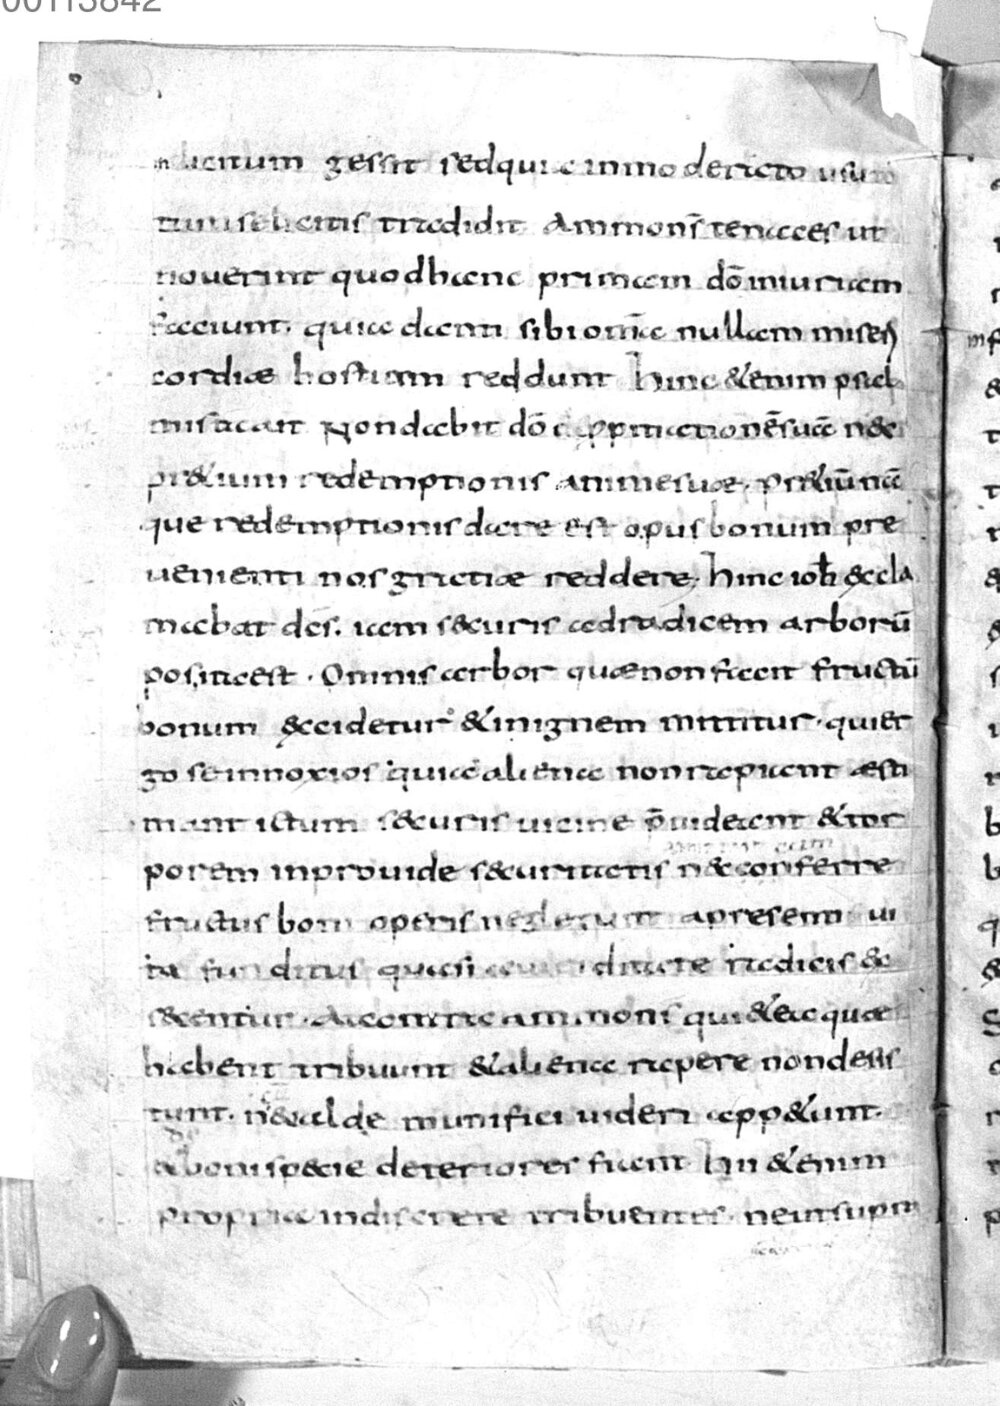 00113842
inlicitum gessit sed quia inmoderato usu to
tum se licitis tradidit Ammonendi s̄ tenaces ut
noverint quod hanc primam dō iniuriam
faciunt. quia danti sibi omīa nullam miseri
cordiae hostiam reddunt hinc &enim psal
mista ait Non dabit dō p̱p̱itiationē suā nec
pr&ium redemptionis animę suae. pr&iū nā
que redemptionis dare est opus bonum pre
venienti nos gratiae reddere. hinc ioh̄ &cla
mabat dcs̄. iam securis ad radicem arborū
posita est. Omnis arbor quae non facit fructū
bonum &ccidetur &in ignem mittitur. qui er
go se innoxios quia aliena non rapiunt aesti
mant ictum securis vicine p̄videant &tor
porem inprovide securitatis n& cum ferre
fructus boni operis neglegunt a presenti vi
ta funditus quasi radicis &
s&centur. At contra ammonendi s̄ qui &ea quae
habent tribuunt &aliena rapere non desis
tunt. ne valde munifici videri app&unt.
& a boni specie deteriores fiant hii &enim
propria indiscrete tribuentes. ne in supra